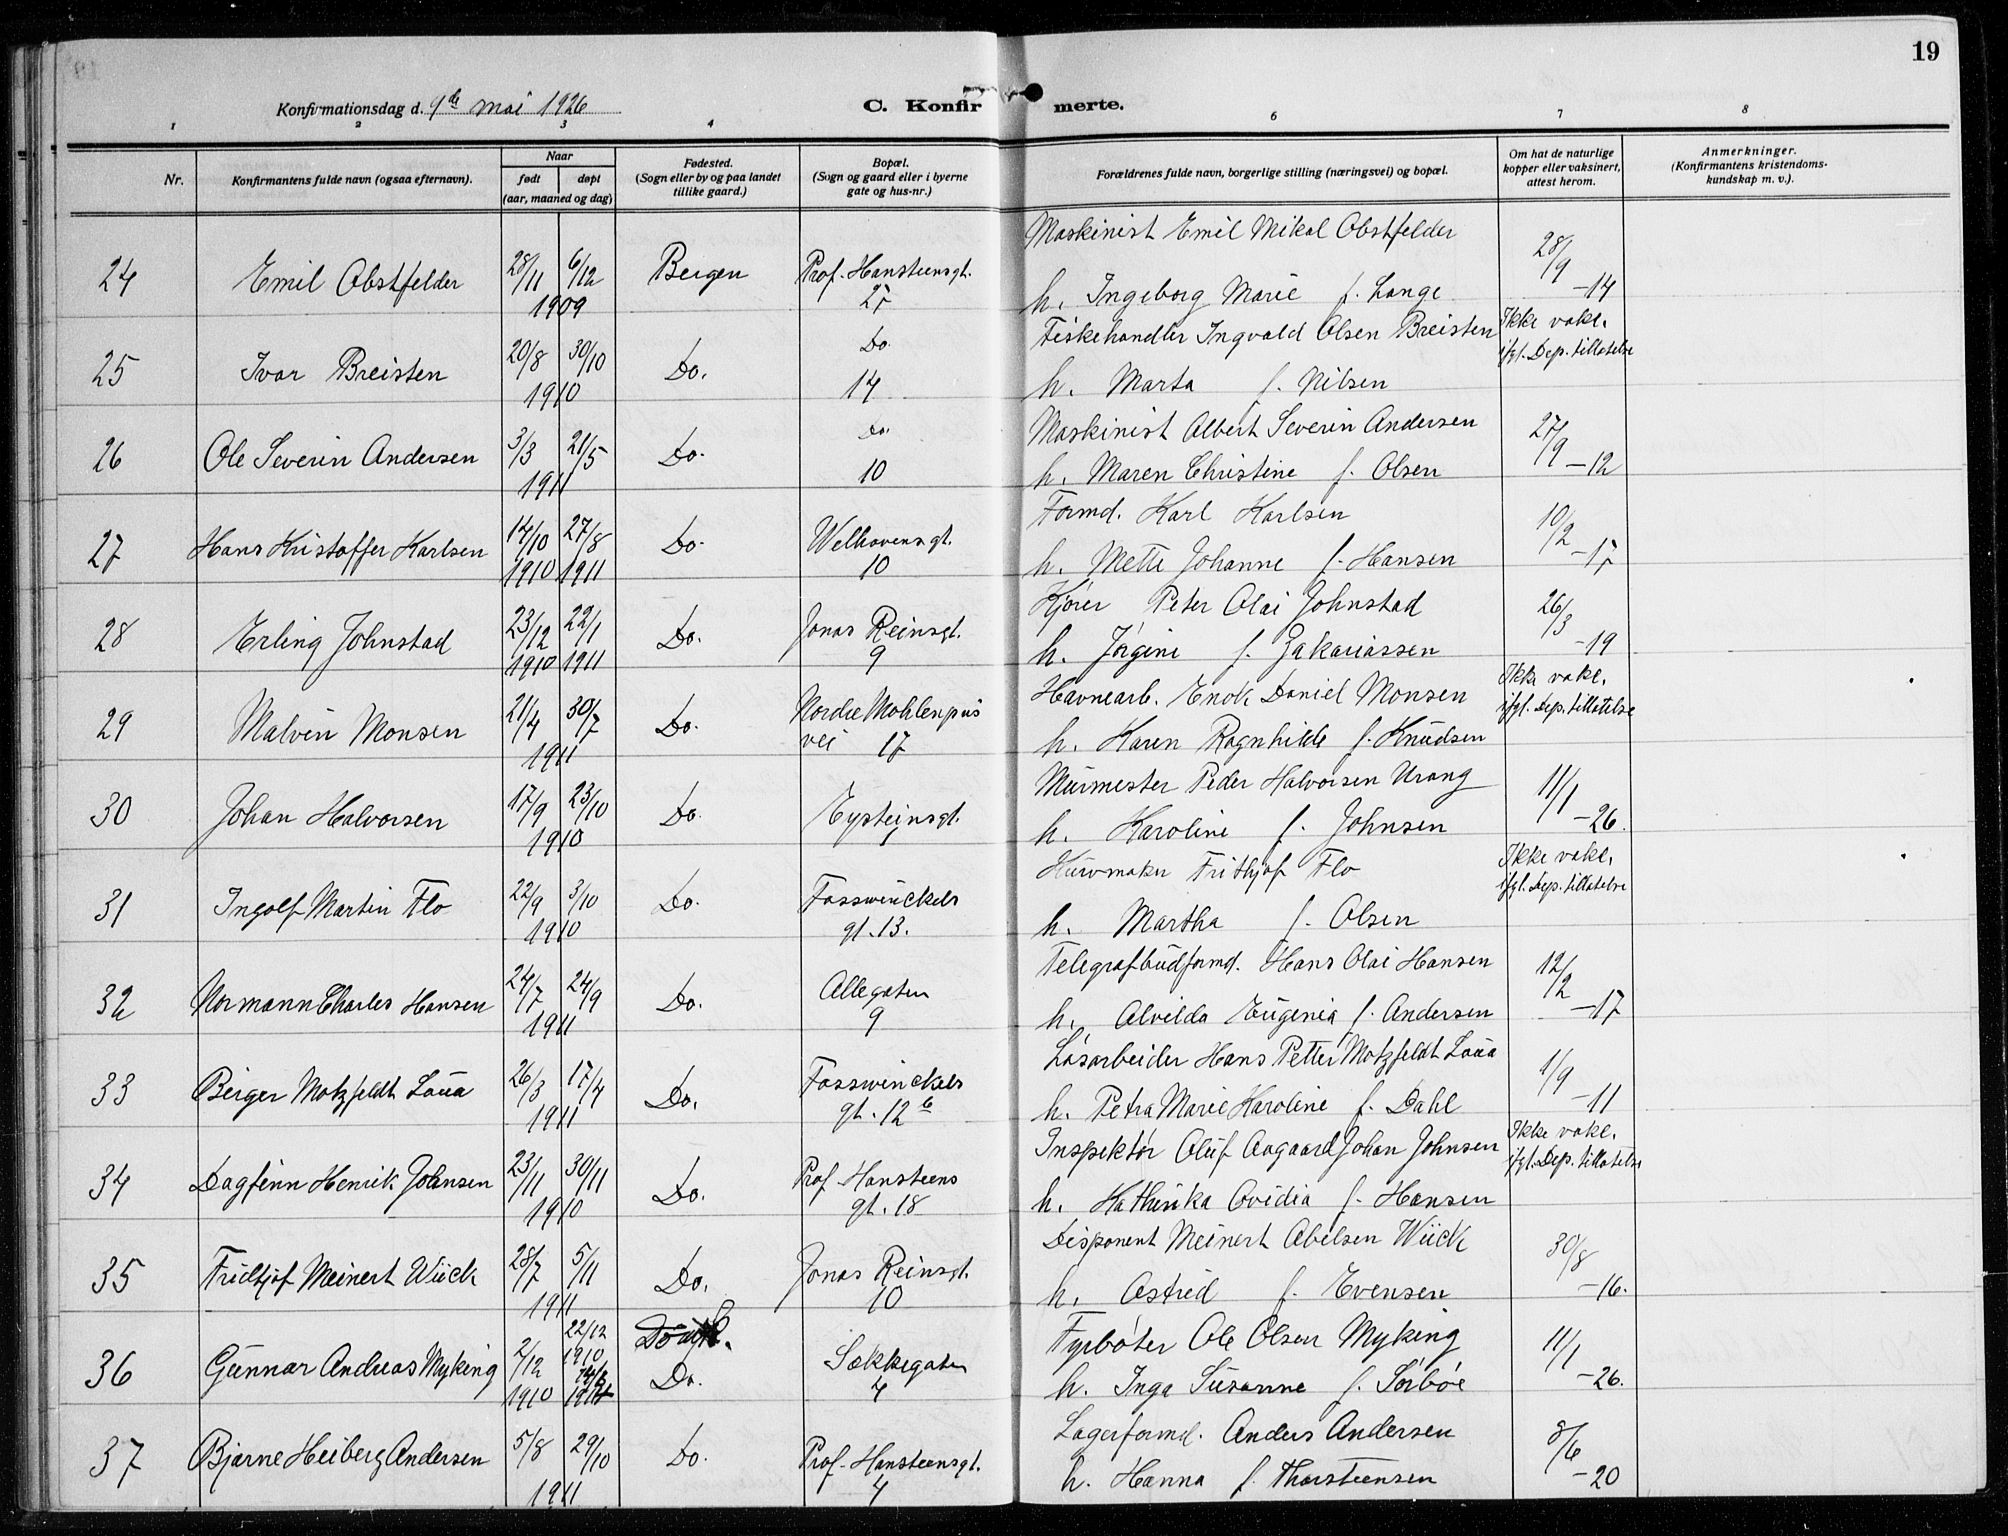 19
Konfirmationsdag d. 9de mai 1926
C. Konfirmerte.
1 2 3 4 6 7 8
Nr.
Konfirmantens fulde navn (ogsaa efternavn).
Naar
født døpt
(aar, maaned og dag)
Fødested.
(Sogn eller by og paa landet
tillike gaard.)
Bopæl.
(Sogn og gaard eller i byerne
gate og hus-nr.)
Forældrenes fulde navn, borgerlige stilling (næringsvei) og bopæl.
Om hat de naturlige
kopper eller vaksinert,
attest herom.
Anmerkninger.
(Konfirmantens kristendoms-
kundskap m. v.).
Maskinist Emil Mikal Obstfelder
24 Emil Obstfelder 28/11 6/12 Bergen Prof. Hansteensgt. 28/9
1909 27 h. Ingeborg Marie f. Lange -14
Fiskehandler Ingvald Olsen Breisten Ikke vakc.
25 Ivar Breisten 20/8 30/10 Do. Do. ifgl. Dep. tillatelse
1910 14 h. Marta f. Nilsen
Maskinist Albert Severin Andersen
26 Ole Severin Andersen 3/3 21/5 Do. Do. 27/9 -12
1911 10 h. Maren Christine f. Olsen
Formd. Karl Karlsen
27 Hans Kristoffer Karlsen 14/10 27/8 Do. Welhavensgt. 10/2
1910 1911 10 h. Mette Johanne f. Hansen -17
Kjører Peter Olai Johnstad
28 Erling Johnstad 23/12 22/1 Do. Jonas Reinsgt. 26/3
1910 1911 9 h. Jørgine f. Zakariassen -19
Havnearb. Enok Daniel Monsen Ikke vakc.
29 Malvin Monsen 21/4 30/7 Do. Nordre Mohlenpris ifgl. Dep. tillatelse
1911 vei 17 h. Karen Ragnhilde f. Knudsen
Murmester Peder Halvorsen Urang
30 Johan Halvorsen 17/9 23/10 Do. Eysteinsgt. 11/1
1910 1 h. Karoline f. Johnsen -26.
Hurvmaker Frithjof Flo Ikke vakc.
31 Ingolf Martin Flo 22/9 3/10 Do. Fosswinckels ifgl. Dep. tillatelse
1910 gt. 13. h. Martha f. Olsen
Telegrafbudformd. Hans Olai Hansen
32 Normann Charles Hansen 24/7 24/9 Do. Allegaten 12/2
1911 9 h. Alvilda Eugenia f. Andersen -17
Løsarbeider Hans Petter Motzfeldt Loua
33 Birger Motzfeldt Loua 26/3 17/4 Do. Fosswinckels 1/9
1911 gt. 12 b h. Petra Marie Karoline f. Dahl -11
Inspektør Oluf Aagaard Johan Johnsen Ikke vakc.
34 Dagfinn Henrik Johnsen 23/11 30/11 Do. Prof. Hansteens ifgl. Dep. tillatelse
1910 gt. 18 h. Kathinka Ovidia f. Hansen
Disponent Meinert Abelsen Wiick
35 Fridtjof Meinert Wiick 28/7 5/11 Do. Jonas Reinsgt. 30/8
1911 10 h. Astrid f. Evensen -16.
Fyrbøter Ole Olsen Myking
36 Gunnar Andreas Myking 2/12 1910 22/12 1910 Do. Sækkegaten 4 11/1
h. Inga Susanne f. Sørbøe -26.
Lagerformd. Anders Andersen
37 Bjarne Heiberg Andersen 5/8 29/10 Do. Prof. Hansteensgt. 8/6
1911 4 h. Hanna f. Thorsteensen -20